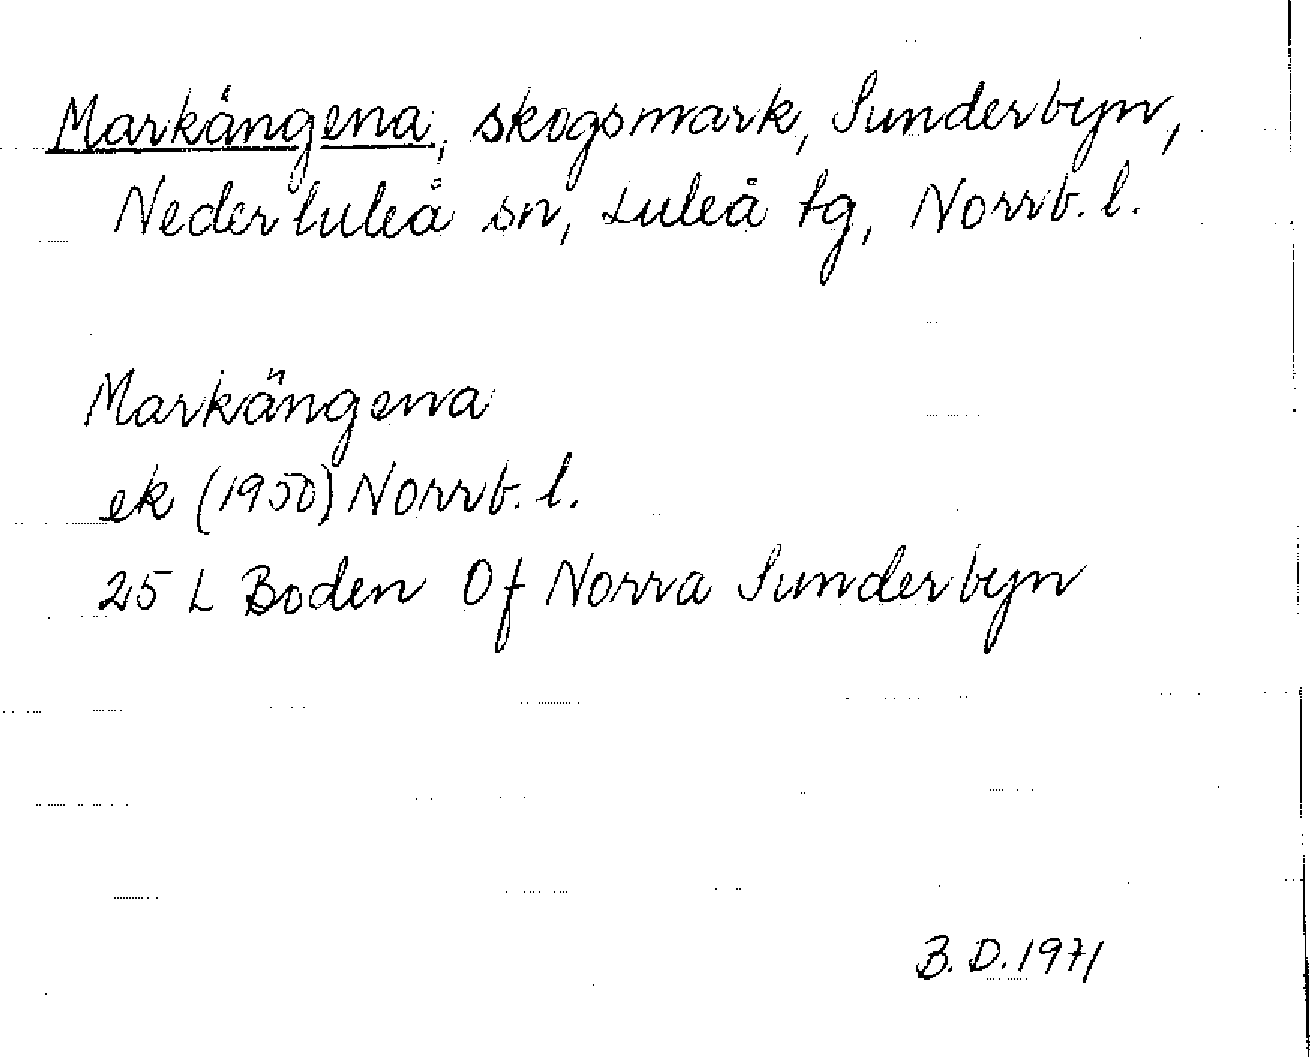 Markängena, skogsmark, Sunderbyn,
Nederluleå sn, Luleå tg, Norrb. l.
Markängena
ek (1950) Norrb. l.
25 L Boden Of Norra Sunderbyn
B. D. 1971